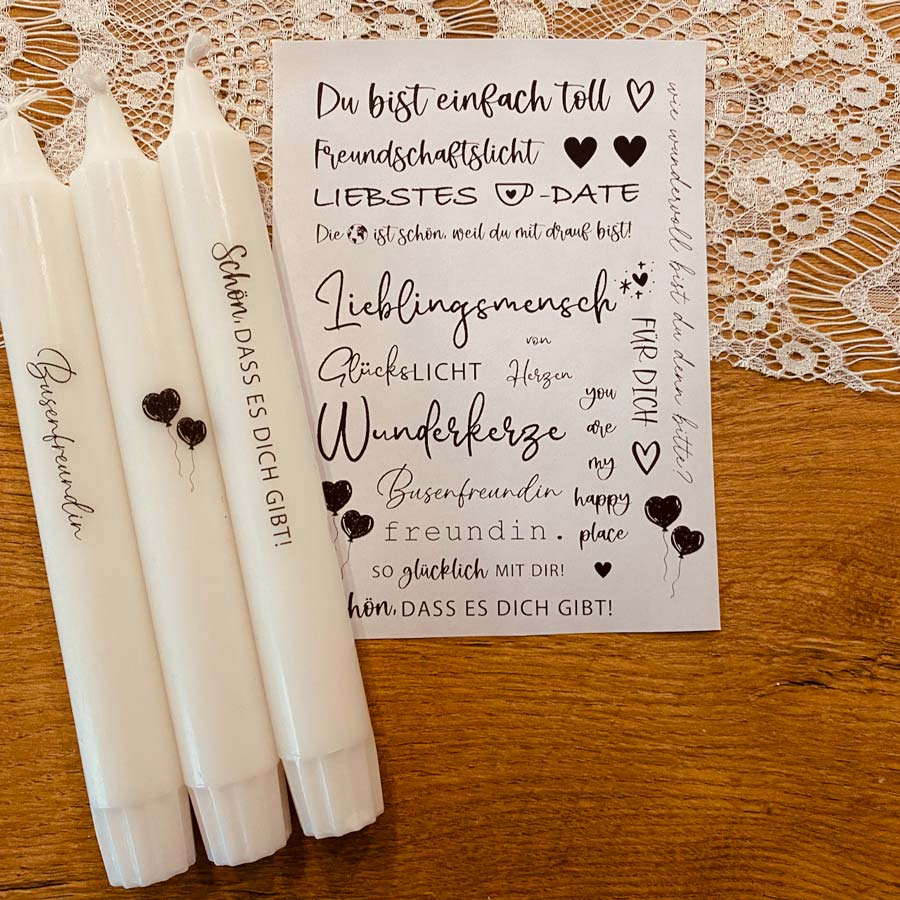 Busenfreundin
Schön, DASS ES DICH GIBT!
Du bist einfach toll
Freundschaftslicht
LIEBSTES -DATE
Die ist schön, weil du mit drauf bist!
Lieblingsmensch
von
Herzen
GlücksLICHT
Wunderkerze
Busenfreundin
freundin.
SO glücklich MIT DIR!
hön, DASS ES DICH GIBT!
you
are
my
happy
place
FÜR DICH
wie wundervoll bist du denn bitte?